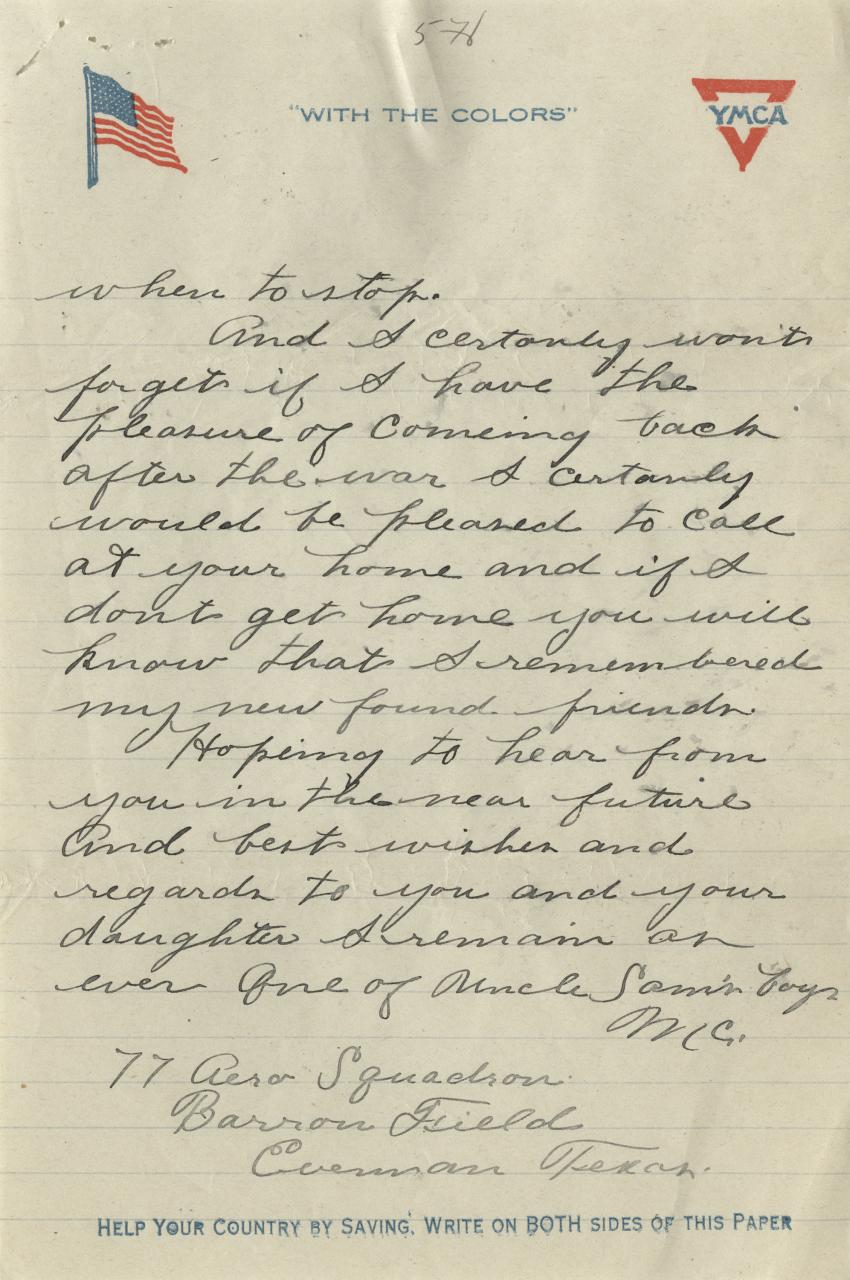 571
"WITH THE COLORS"
YMCA
when to stop.
And I certanly wont
forget if I have the
pleasure of Comeing back
after the war I certanly
would be pleased to Call
at your home and if I
dont get home you will
know that I remembered
my new found friends
Hopeing to hear from
you in the near future
And best wishes and
regards to you and your
daughter I remain as
ever One of Uncle Sam's boys
Mc.
77 Aero Squadron
Barron Field
Everman Texas.
HELP YOUR COUNTRY BY SAVING. WRITE ON BOTH SIDES OF THIS PAPER